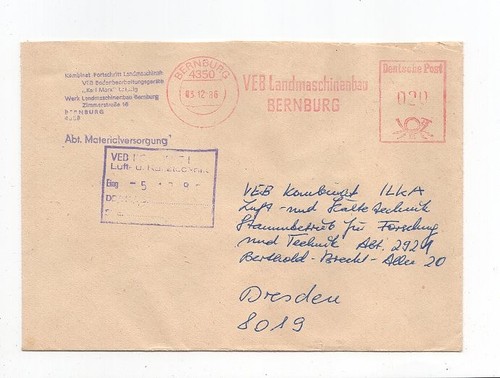 Kombinat Fortschritt Landmaschinen
VEB Bodenbearbeitungsgeräte
"Karl Marx" Leipzig
Werk Landmaschinenbau Bernburg
Zimmerstraße
BERNBURG
Abt. Materialversorgung
BERNBURG
4350
03.12.86
VEB Landmaschinenbau
BERNBURG
Deutsche Post
020
VEB
Luft- u.
Eing
VEB Kombinat ILKA
Luft- und Kältetechnik
Stammbetrieb für Forschung
und Technik Abt. 2924
Berthold-Brecht-Allee 20
Dresden
8019